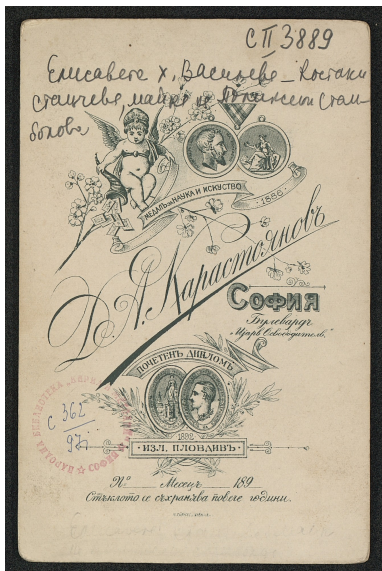 С II 3889
Елисавета х. Василева - Костаки
станчева, майка на Поликсени Стам-
болова
МЕДАЛЪ ЗА НАУКА И ИСКУСТВО
·1886·
Д. А. Карастояновъ
СОФИЯ
Булевардъ
„Царь Освободитель."
ПОЧЕТЕНЪ ДИПЛОМЪ
1892
·ИЗЛ. ПЛОВДИВЪ·
НАРОДНА БИБЛИОТЕКА
СОФИЯ
С 362
97
№ Месецъ 189
Стъклото се съхранява повече години.